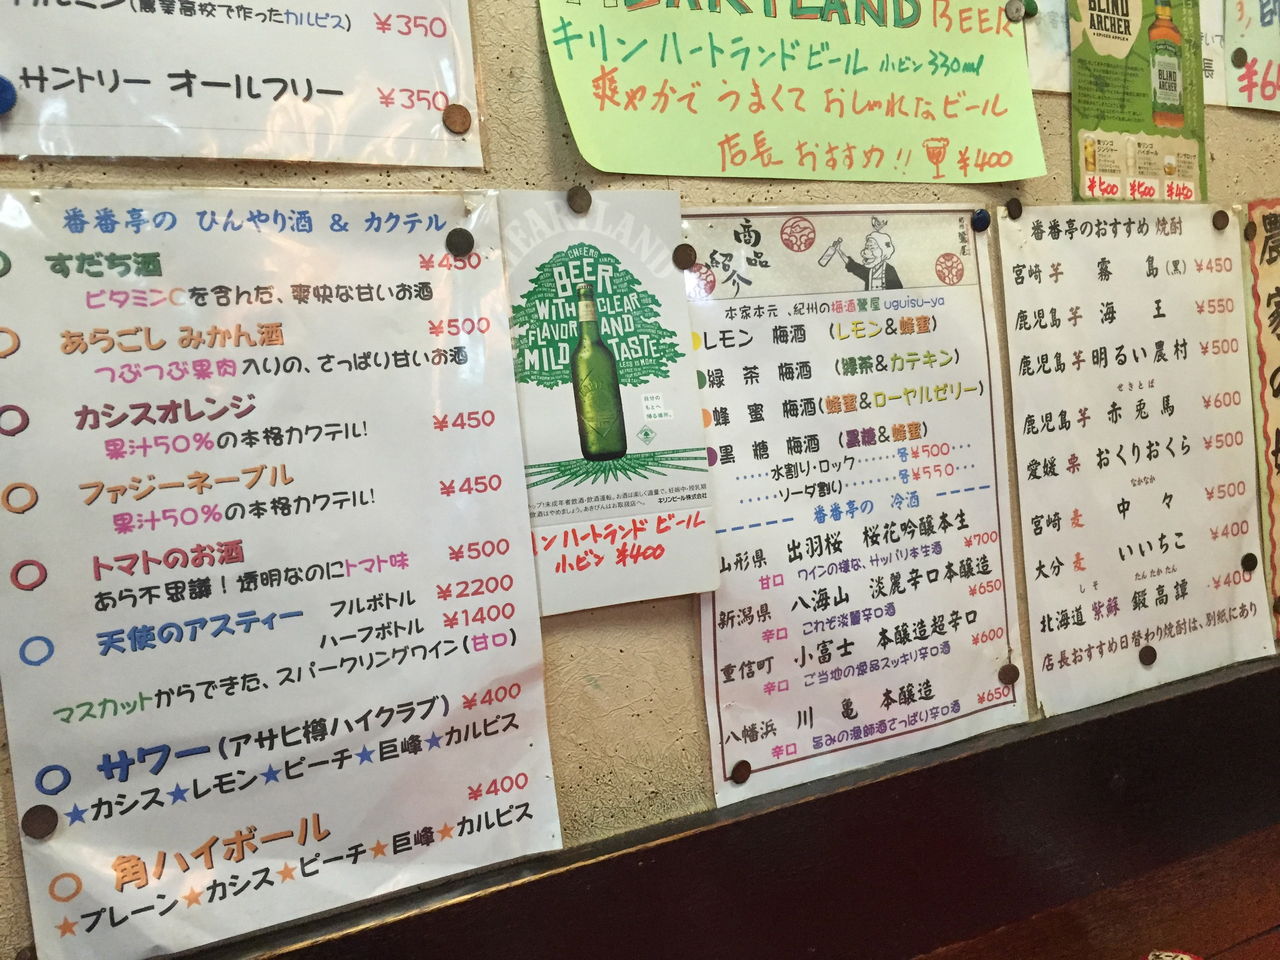 (農業高校で作ったカルピス) ¥350
サントリー オールフリー ¥350
HEARTLAND BEER
キリン ハートランドビール 小ビン 330ml
爽やかで うまくて おしゃれなビール
店長 おすすめ!! ¥400
BLIND ARCHER
¥500 ¥500 ¥450
番番亭の ひんやり酒 & カクテル
すだち酒 ¥450
ビタミンCを含んだ、爽快な甘いお酒
あらごし みかん酒 ¥500
つぶつぶ果肉入りの、さっぱり甘いお酒
カシスオレンジ ¥450
果汁50%の本格カクテル!
ファジーネーブル ¥450
果汁50%の本格カクテル!
トマトのお酒 ¥500
あら不思議!透明なのにトマト味
天使のアスティー フルボトル ¥2200
ハーフボトル ¥1400
マスカットからできた、スパークリングワイン(甘口)
サワー(アサヒ樽ハイクラブ) ¥400
★カシス★レモン★ピーチ★巨峰★カルピス
角ハイボール ¥400
★プレーン★カシス★ピーチ★巨峰★カルピス
HEARTLAND
CHEERS
BEER
WITH CLEAR
FLAVOR AND
MILD TASTE
自分の
もとへ
帰る場所。
キリンビール株式会社
ハートランド ビール
小ビン ¥400
商品紹介
本家本元、紀州の梅酒鶯屋 uguisu-ya
レモン 梅酒 (レモン&蜂蜜)
緑茶 梅酒 (緑茶&カテキン)
蜂蜜 梅酒(蜂蜜&ローヤルゼリー)
黒糖 梅酒 (黒糖&蜂蜜)
‥‥‥水割り・ロック‥‥‥各¥500‥‥
‥‥‥ソーダ割り‥‥‥‥各¥550‥‥
番番亭の 冷酒
山形県 出羽桜 桜花吟醸本生 ¥700
甘口 ワインの様な、サッパリ本生酒
新潟県 八海山 淡麗辛口本醸造 ¥650
辛口 これぞ淡麗辛口酒
重信町 小富士 本醸造超辛口 ¥600
辛口 ご当地の逸品スッキリ辛口酒
八幡浜 川亀 本醸造 ¥650
辛口 旨みの漁師酒さっぱり辛口酒
番番亭のおすすめ 焼酎
宮崎 芋 霧島(黒) ¥450
鹿児島 芋 海王 ¥550
鹿児島 芋 明るい農村 ¥500
せきとば
鹿児島 芋 赤兎馬 ¥600
愛媛 栗 おくりおくら ¥500
なかなか
宮崎 麦 中々 ¥500
大分 麦 いいちこ ¥400
しそ たんたかたん
北海道 紫蘇 鍛高譚 ¥400
店長おすすめ日替わり焼酎は、別紙にあり
農家の